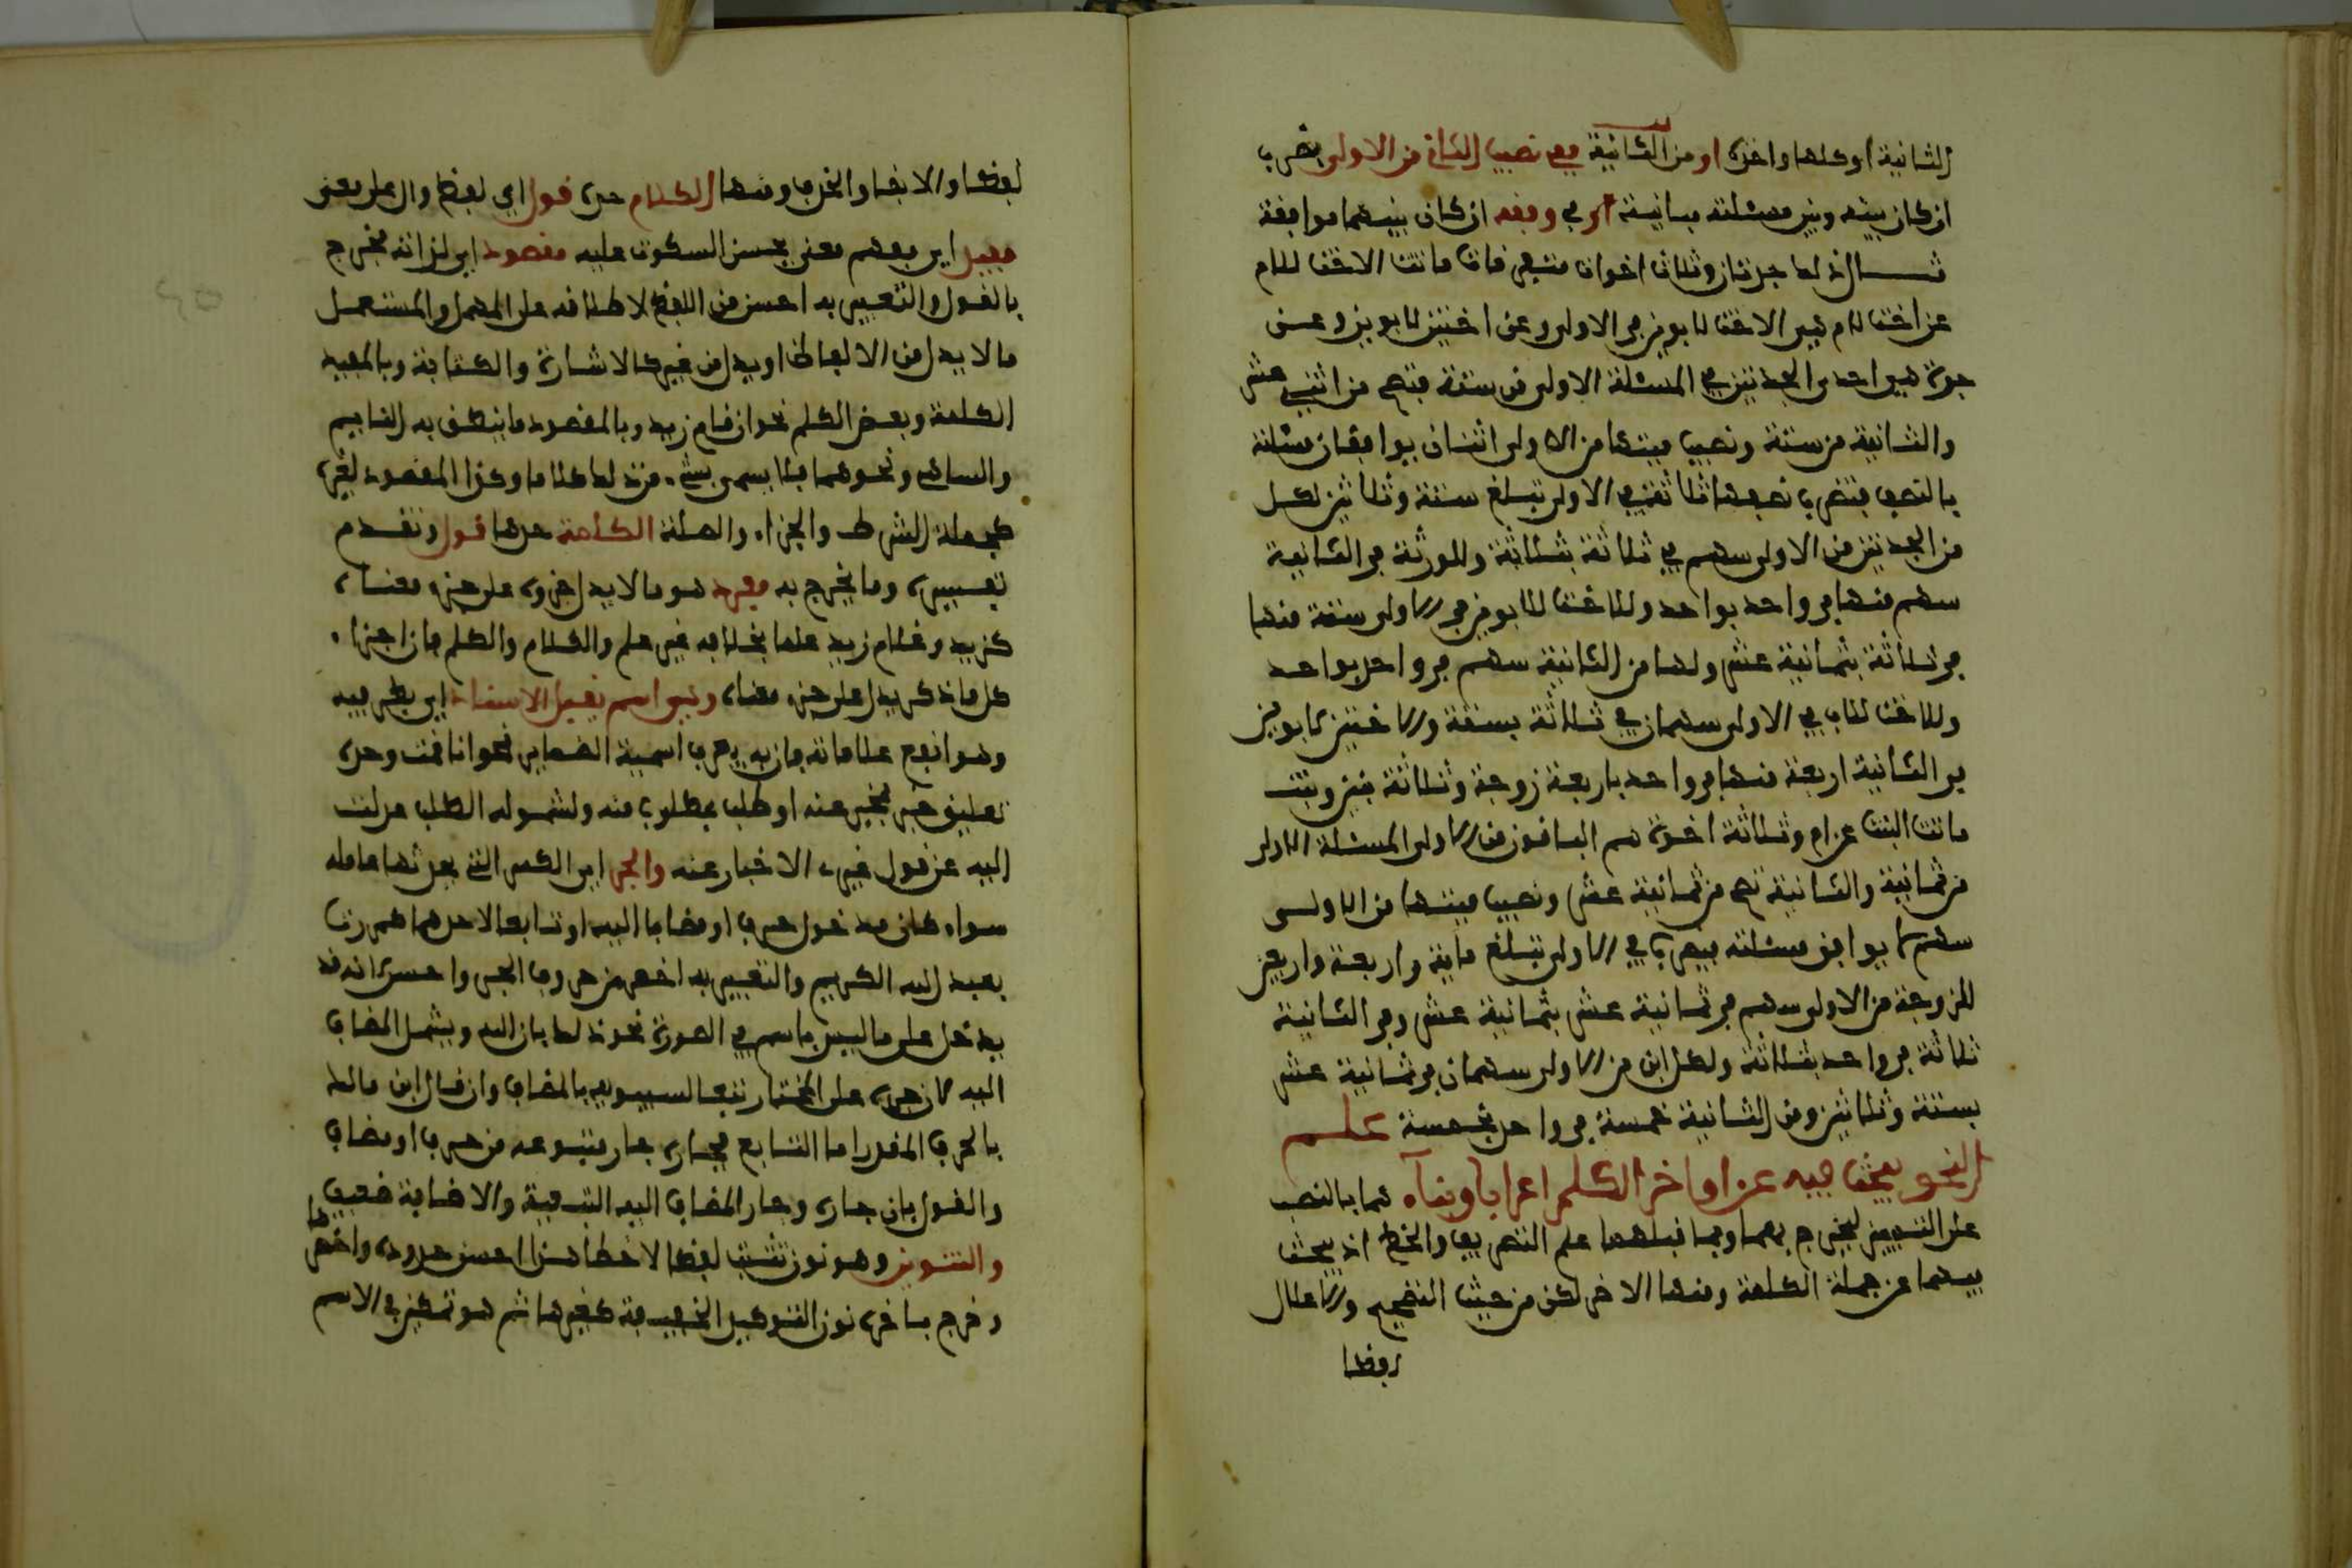 الثانية او كلها واخذه او من الثانية ففي نصيب الثاني من الاولى يضرب
ان كان بينه وبين مسئلته مباينة او في وفقه ان كان بينهما موافقة
مثال ذلك جدتان وثلاث اخوات متفرقات ماتت الاخت للام
عن اخت لام هي الاخت لابوين في الاولى وعن اختين لابوين وعن
جدة هي احدى الجدتين في المسئلة الاولى من ستة فتصح من اثني عشر
والثانية من ستة ونصيب ميتها من الاولى اثنان يوافقان مسئلته
بالنصف فتضرب نصفها ثلاثة في الاولى تبلغ ستة وثلاثين لكل
من الجدتين من الاولى سهم في ثلاثة بثلاثة وللورثة في الثانية
سهم منها في واحد بواحد وللاخت للابوين في الاولى ستة منها
في ثلاثة بثمانية عشر ولها من الثانية سهم في واحد بواحد
وللاخت للاب في الاولى سهمان في ثلاثة بستة وللاختين لابوين
في الثانية اربعة منها في واحد باربعة زوجة وثلاثة بنين وبنت
ماتت البنت عن ام وثلاثة اخوة هم الباقون من الاولى المسئلة الاولى
من ثمانية والثانية تصح من ثمانية عشر ونصيب ميتها من الاولى
سهم لا يوافق مسئلته فيضرب في الاولى تبلغ مائة واربعة واربعين
للزوجة من الاولى سهم في ثمانية عشر بثمانية عشر وفي الثانية
ثلاثة في واحد بثلاثة ولكل ابن من الاولى سهمان في ثمانية عشر
بستة وثلاثين ومن الثانية خمسة في واحد بخمسة علم
النحو يبحث فيه عن اواخر الكلم اعرابا وبناء هما بالنصب
على التمييز ليخرج بهما وبما قبلهما علم التصريف والخط اذ يبحث
فيهما عن جملة الكلمة ومنها الاخر لكن من حيث التفخيم والاعلال
لفظا
لفظا والابقاء والحذف ومنها الكلام حده قول اي لفظ دال على معنى
مفيد اي يفهم معنى يحسن السكوت عليه مقصود اي لذاته فخرج
بالقول والتعبير به احسن من اللفظ لاطلاقه على المهمل والمستعمل
ما لا يدل من الالفاظ او يدل من غيرها كالاشارة والكتابة وبالمفيد
الكلمة وبعض الكلم نحو ان قام زيد وبالمقصود ما ينطق به النائم
والساهي ونحوهما فلا يسمى شيء من ذلك كلاما وكذا المقصود لغيره
كجملة الشرط والجزاء والصلة الكلمة حدها قول وتقدم
تفسيره وما يخرج به مفرد هو ما لا يدل جزؤه على جزء معناه
كزيد وغلام زيد علما بخلافه غير علم والكلام والكلم فان اجزاء
كل ما ذكر يدل على جزء معناه وهي اسم يقبل الاسناد اي بطرفيه
وهو انفع علاماته فان به يعرف اسمية الضماير نحو انا قمت وحده
تعليق خبر بمخبر عنه او طلب بمطلوب منه ولشموله الطلب عدلت
اليه عن قول غيره الاخبار عنه والجر اي الكسر التي يحدثها عامله
سواء كان مدخول حرف او مضافا اليه او تابعا لاحدهما كمررت
بعبد الله الكريم والتعبير به اخصر من حروف الجر واحسن لانه قد
يدخل على ما ليس باسم في الصورة نحو ذلك بان الله ويشمل المضاف
اليه لان جره على المختار تبعا لسيبويه بالمضاف وان قال ابن مالك
بالحرف المقدر اما التابع فجاره جار متبوعه من حرف او مضاف
والقول بان جاره وجار المضاف اليه التبعية والاضافة ضعيف
والتنوين وهو نون تثبت لفظا لا خطا هذا احسن حدوده واخصرها
وخرج باخره نون التوكيد الخفيفة كغيرها ثم هو تمكين في الاسم